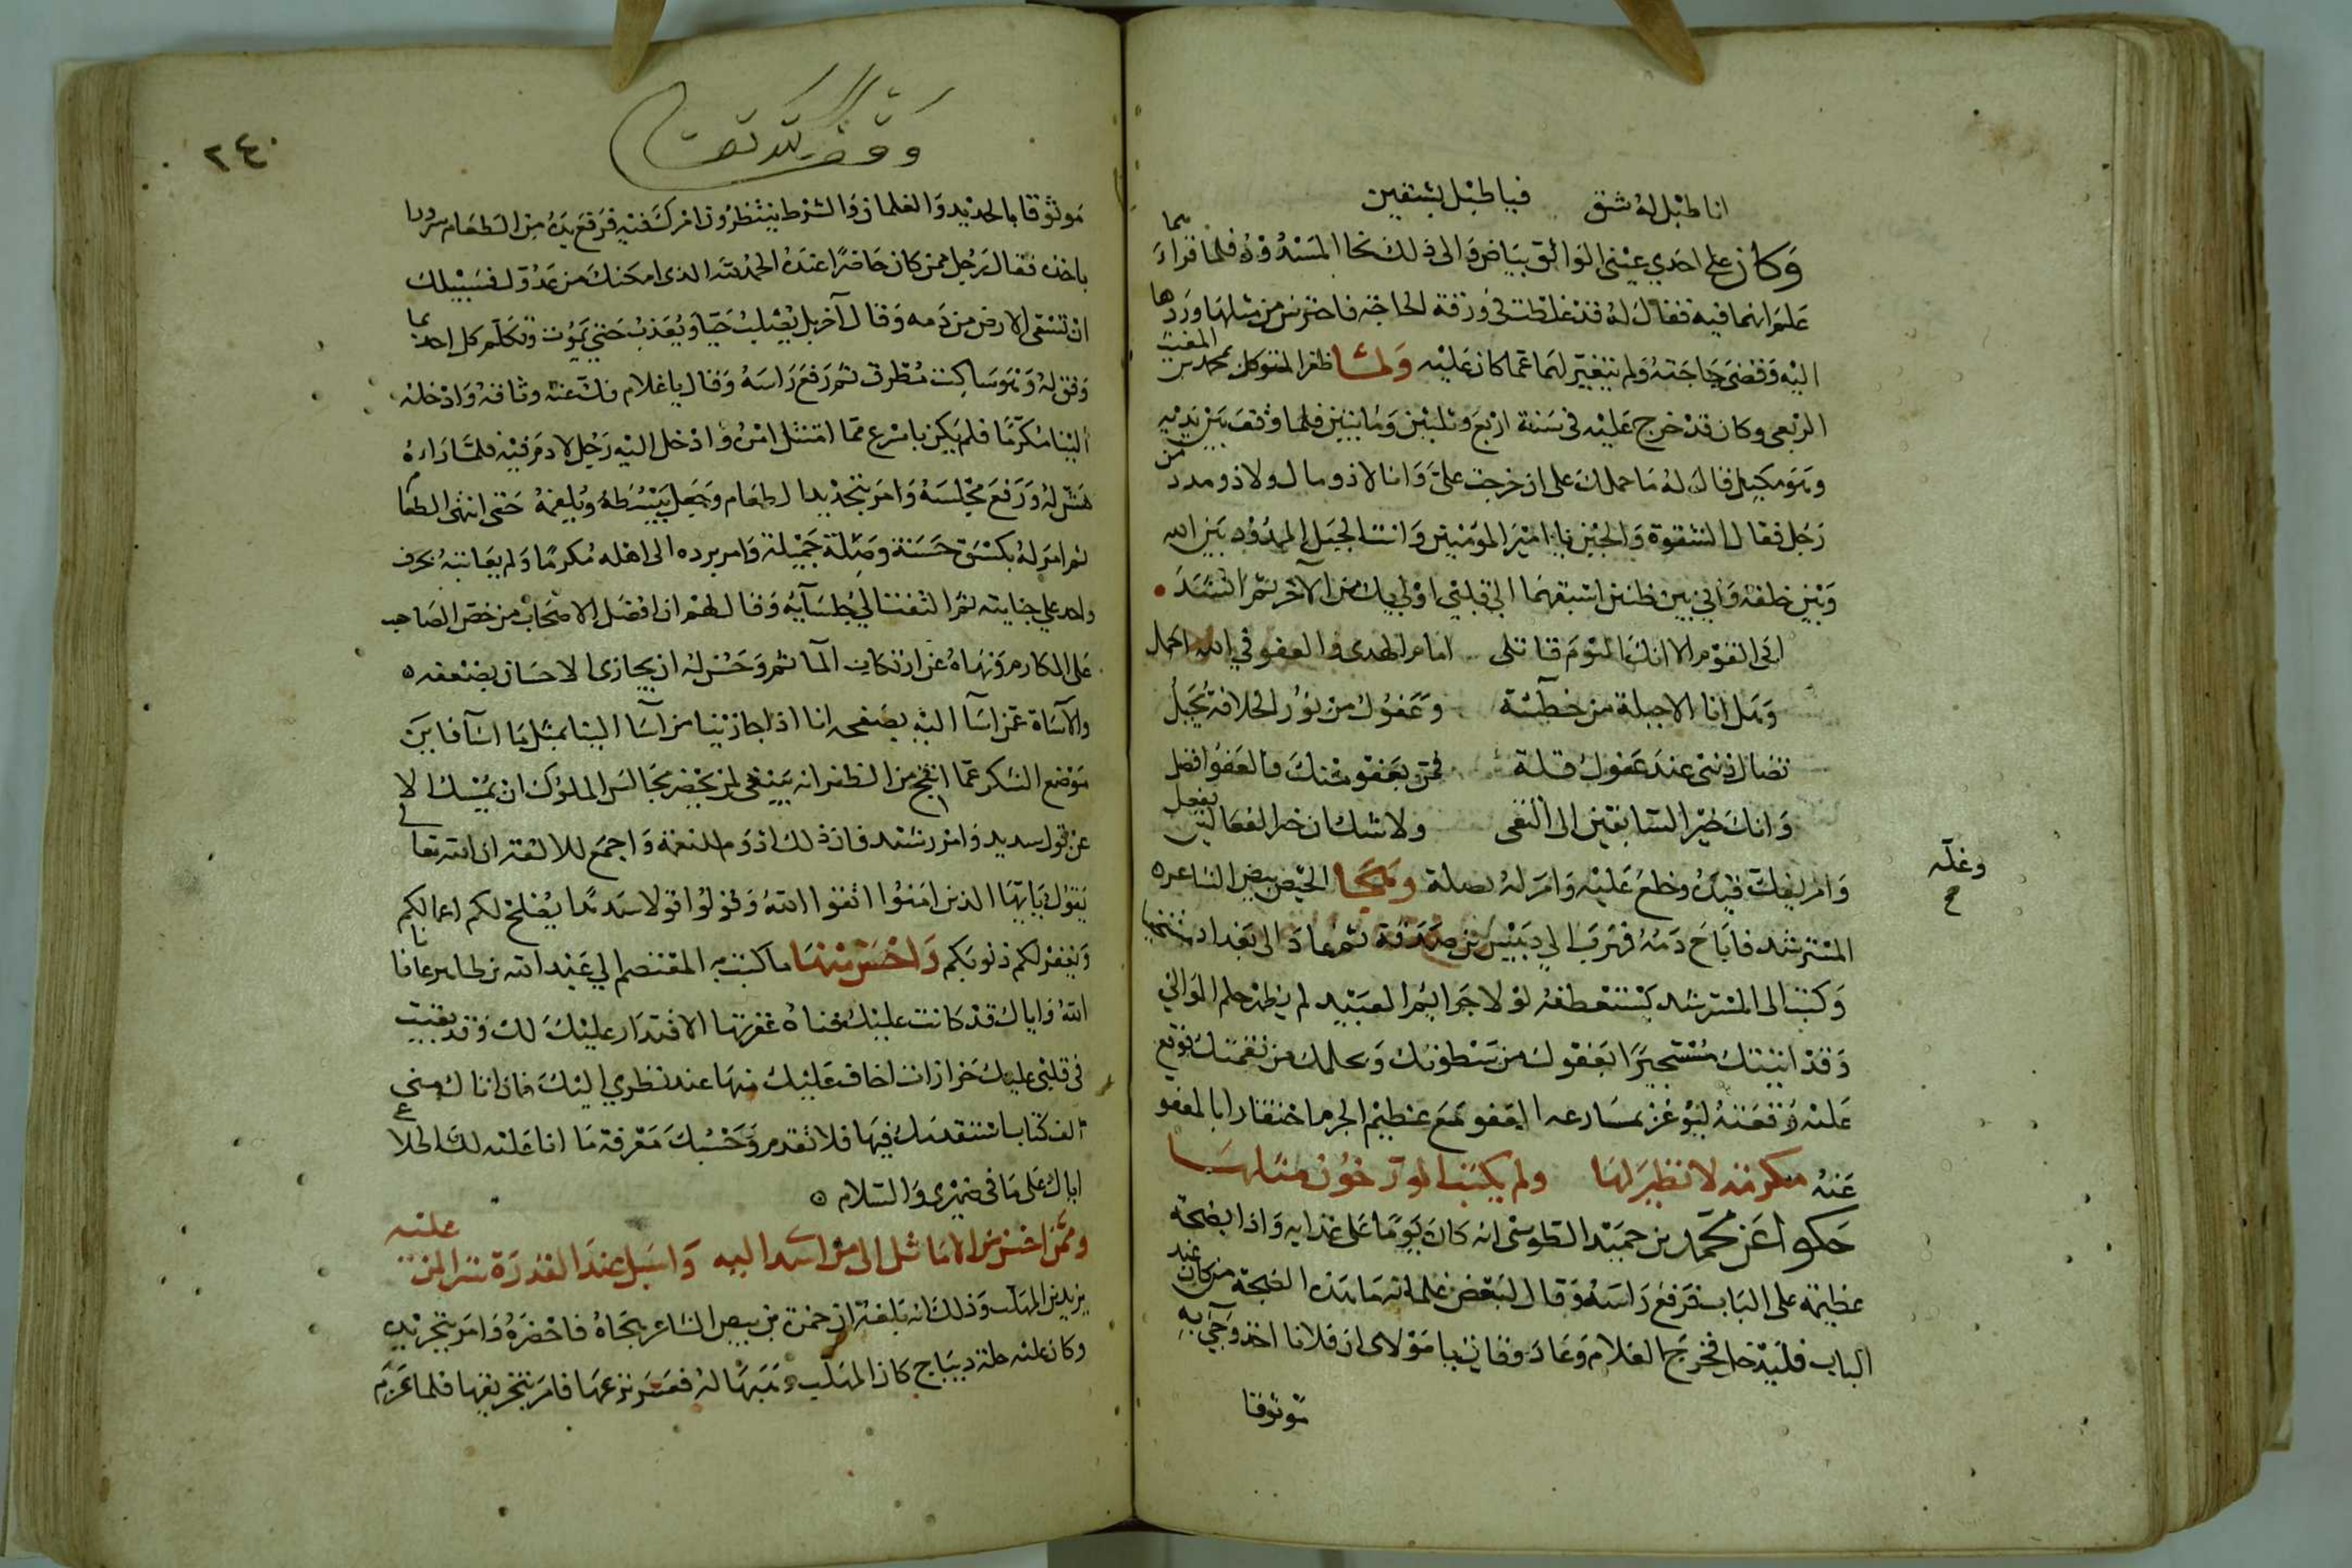 انا طبل له شق فيا طبل بشقين
وكان على احدي عيني الواثق بياض والى ذلك نحا المسدود فلما قراءَ
علم انهما فيه فقال له قد غلطت في ورقة الحاجة فاحترس من مثلها وردها
اليه وقضى حاجته ولم يتغير لهما عما كان عليه ولما ظفر المتوكل بمحمد بن المغيث
الربعى وكان قد خرج عليه فى سنة اربع وثلثين ومايتين فلما وقف بين يديه
وهو مكبل قال له ما حملك على ان خرجت علىّ وانا لا ذو مال ولا ذو مدد من
رجل فقال الشقوة والحين يا امير المومنين وانت الحبل الممدود بين الله
وبين خلقه واني بين ظنين اسبقهما الى قلبي اولى بك من الآخر ثم انشد
ابى القوم الا انك اليوم قاتلى امام الهدى والعفو في الله اجمل
وهل انا الا جبلة من خطيئة وعفوك من نور الخلافة يجبل
تضال ذنبى عند عفوك قلة فمن بعفو منك فالعفو افضل
وانك خير السابقين الى التقى ولا شك ان خير الفعالين يفعل
وامر بفك قيده وخلع عليه وامر له بصلة وهجا الحيص بيص الشاعر
وغله صح
المسترشد فاباح دمه فهرب الي دبيس بن صدقة ثم عاد الى بغداد متخفيا
وكتب الى المسترشد يستعطفه لولا جرايم العبيد لم يظهر حلم الموالي
وقد اتيتك مستجيرا بعفوك من سطوتك وبحلمك من نقمتك فوقع
عليه وقعته ليوعز بمسارعه العفو مع عظيم الجرم اختقارا بالمعفو
عنه مكرمة لا نظير لها ولم يكتب المورخون مثلها
حكوا عن محمد بن حميد الطوسى انه كان يوما على غدايه واذا بضجة
عظيمة على الباب فرفع راسه وقال لبعض غلمانه ما هذه الضجة من كان عند
الباب فليدخل فخرج الغلام وعاد وقال يا مولاى ان فلانا اخذ وجي به
موثوقا
وقف لله تعالى
٢٤٠
موثوقا بالحديد والغلمان والشرط ينتظرون امرك فيه فرفع يده من الطعام سرورا
باخذه فقال رجل ممن كان حاضرا عنده الحمد لله الذى امكنك من عدوك فسبيلك
ان تسقى الارض من دمه وقال آخر بل يصلب حيا ويعذب حتى يموت وتكلم كل احد بما
وفق له وهو ساكت مطرق ثم رفع راسه وقال يا غلام فك عنه وثاقه وادخله
الينا مكرما فلم يكن باسرع مما امتثل امره وادخل اليه رجل لا دم فيه فلما راءه
هش له ورفع مجلسه وامر بتجديد الطعام وجعل يبسطه ويلقمه حتى انتهى الطعام
ثم امر له بكسوة حسنة وصلة جميلة وامر برده الى اهله مكرما ولم يعاتبه بحرف
واحد علي جنايته ثم التفت الي جلسايه وقال لهم ان افضل الاصحاب من حض الصاحب
على المكارم ونهاه عن ارتكاب المآثم وحسن له ان يجازى الاحسان بضعفه
والآساة عمن اسآ اليه بصفحه انا اذا جازينا من آسا الينا بمثل ما اسآ فاين
موضع الشكر عما اتيح من الظفر انه ينبغى لمن يحضر مجالس الملوك ان يمسك الا
عن قول سديد وامر رشد فان ذلك ادوم للنعمة واجمع للالفة ان الله تعالى
يقول يايها الذين امنوا اتقوا الله وقولوا قولا سديدا يصلح لكم اعمالكم
ويغفر لكم ذنوبكم واحسن منها ما كتب به المعتصم الي عبد الله بن طاهر عافانا
الله واياك قد كانت عليك هناه غفرتها الاقتدار عليك لك وقد بقيت
فى قلبى عليك حزازات اخاف عليك منها عند نظري اليك فان اتاك منى
الف كتاب استقدمك فيها فلا تقدم وحسبك معرفة ما انا عليه لك اطلاعى
اياك على ما فى ضميرى والسلام
وممن احسن من الاماثل الى من اسدا اليه واسبل عند القدرة ستر المن عليه
يزيد بن المهلب وذلك انه بلغه ان حمزة بن بيص الشاعر هجاه فاحضره وامر بتجريده
وكان عليه حلة ديباج كان المهلب وهبها له فعسر نزعها فامر بتخريقها فلما عزم